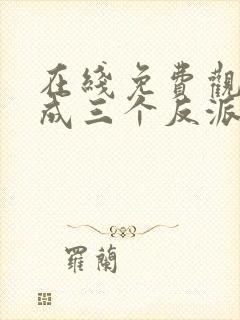 在綫免費觀
成三个反派
羅蘭